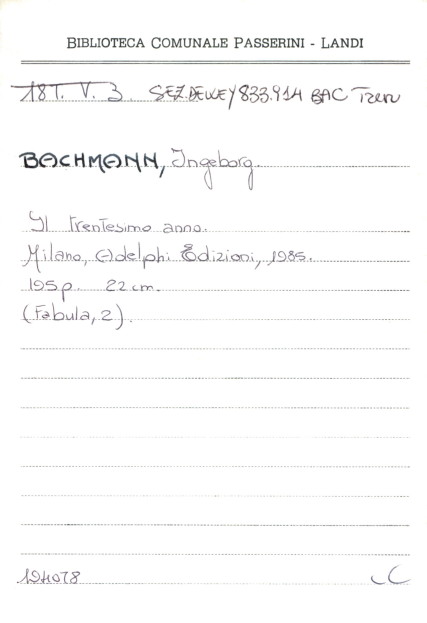 BIBLIOTECA COMUNALE PASSERINI - LANDI
18T. V. 3. SEZ.DEWEY 833.914 BAC Tren
BACHMANN, Ingeborg.
Il trentesimo anno.
Milano, Adelphi Edizioni, 1985.
195p. 22 cm.
(Fabula, 2).
194078